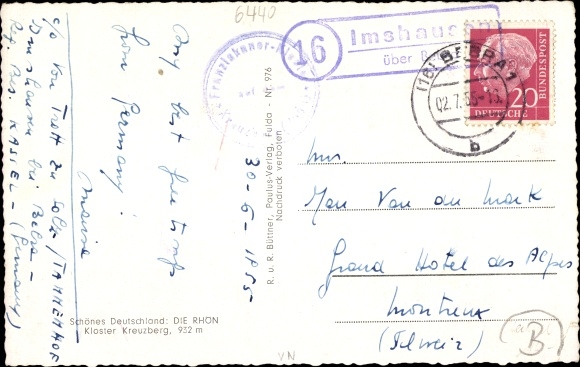 6440
16
Imshausen
über Bebra
(16) BEBRA 1
02.7.55
b
20
DEUTSCHE
BUNDESPOST
Franziskaner
My best greetings
from Germany!
30-6-1955
c/o Von Trott zu Solz / TANNENHOF
Imshausen bei Bebra -
Reg. Bez. KASSEL - (Germany)
R. u. R. Büttner, Paulus-Verlag, Fulda Nr. 976
Nachdruck verboten
Schönes Deutschland: DIE RHÖN
Kloster Kreuzberg, 932 m
Van der Mark
Grand Hotel des Alpes
Montreux
(Schweiz)
B
VN